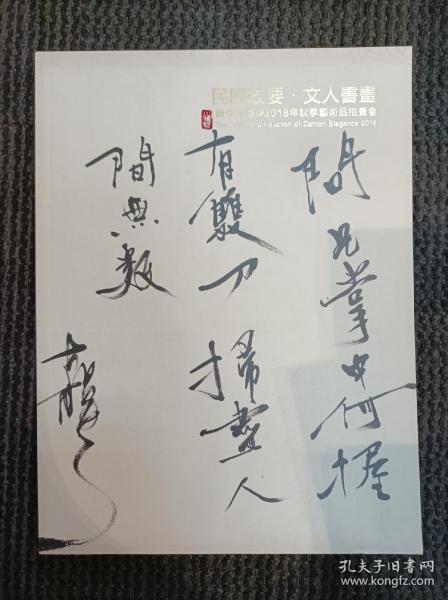 民國政要·文人書畫
2018年秋季藝術品拍賣會
Auction of Canton Elegance 2018
問兄掌中何握
有雙刀掃盡人
間無数
孔夫子旧书网
www.kongfz.com